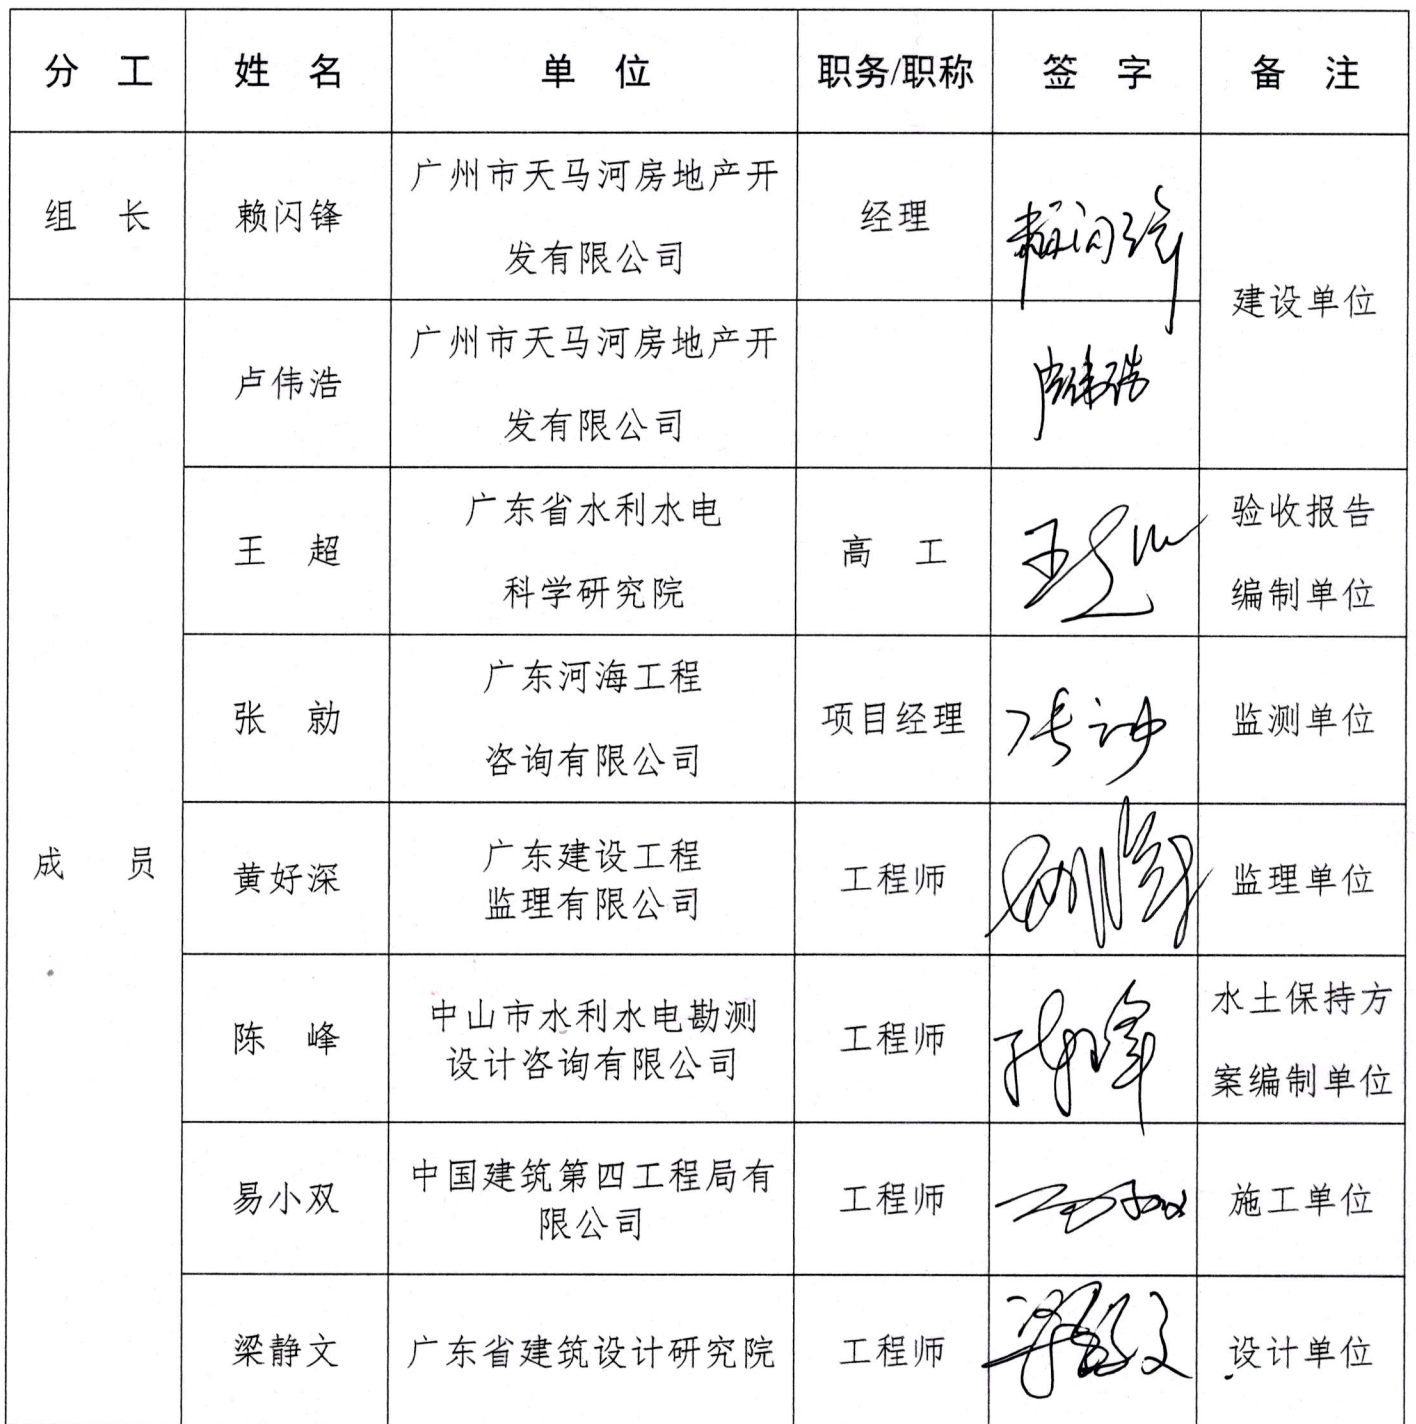 分 工 姓 名 单 位 职务/职称 签 字 备 注
组 长 赖闪锋 广州市天马河房地产开
发有限公司 经理 赖闪锋 建设单位
成 员 卢伟浩 广州市天马河房地产开
发有限公司 卢伟浩
王 超 广东省水利水电
科学研究院 高 工 王超 验收报告
编制单位
张 勍 广东河海工程
咨询有限公司 项目经理 监测单位
黄好深 广东建设工程
监理有限公司 工程师 监理单位
陈 峰 中山市水利水电勘测
设计咨询有限公司 工程师 陈峰 水土保持方
案编制单位
易小双 中国建筑第四工程局有
限公司 工程师 施工单位
梁静文 广东省建筑设计研究院 工程师 梁静文 设计单位